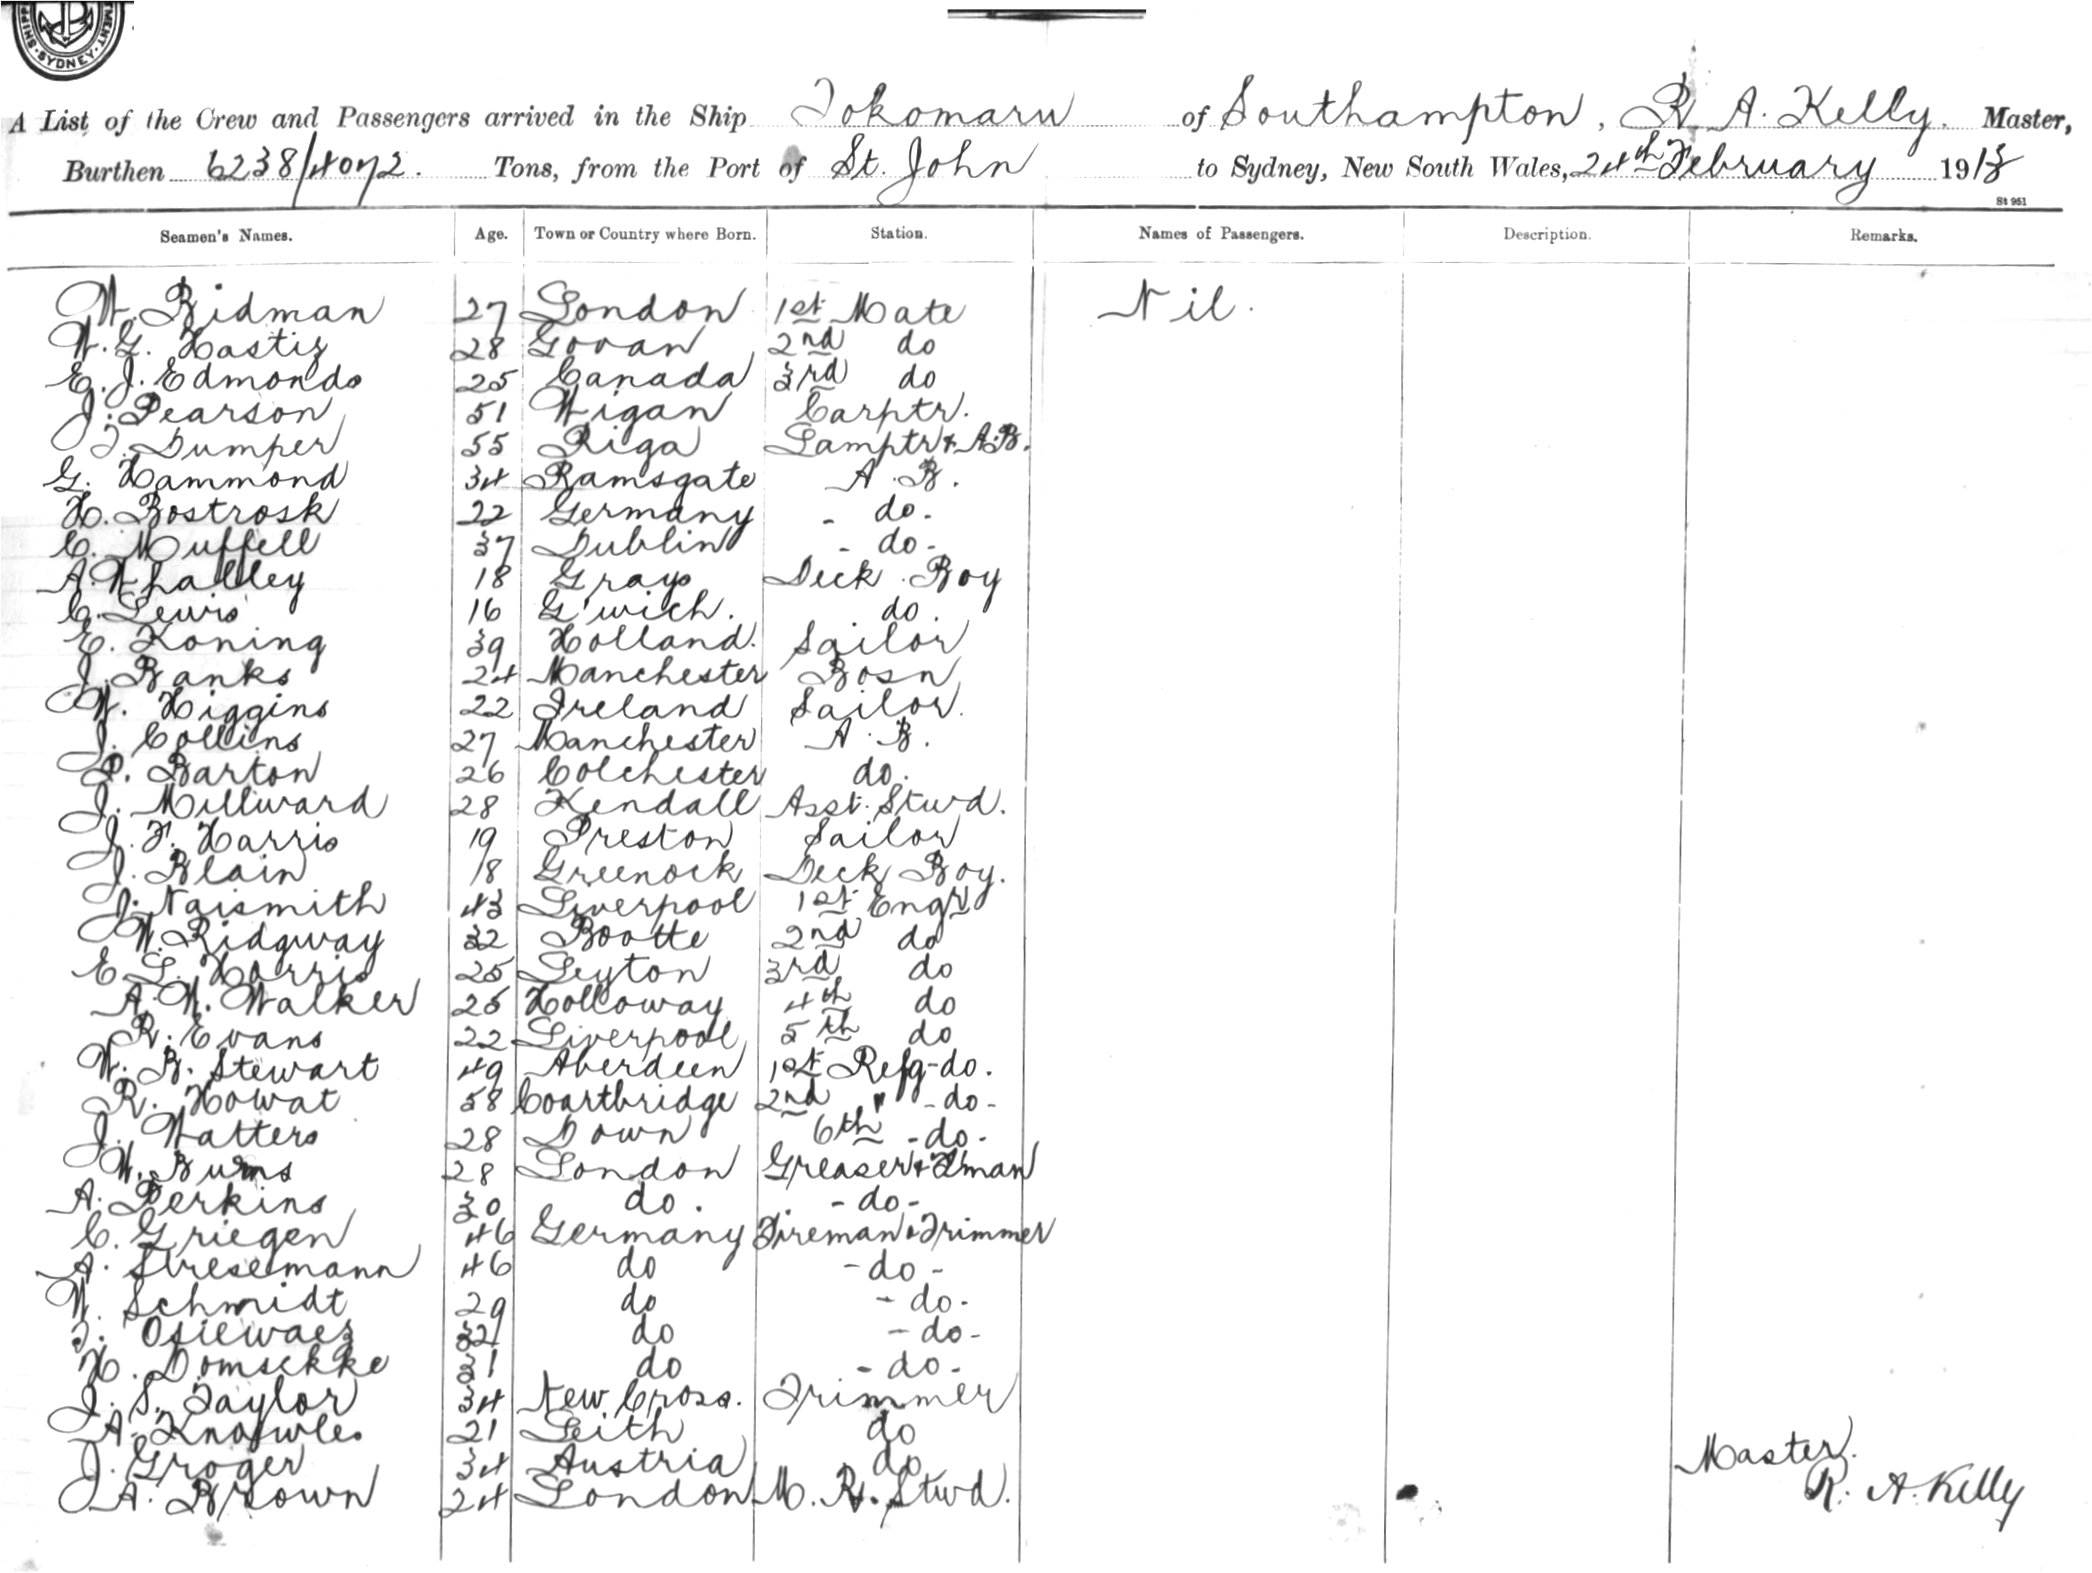 SHIPP MENT. SYDNEY.
A List of the Crew and Passengers arrived in the Ship Tokomaru of Southampton, R. A. Kelly. Master,
Burthen 6238/4072. Tons, from the Port of St. John to Sydney, New South Wales, 24th February 1913
St 951
Seamen's Names. Age. Town or Country where Born. Station. Names of Passengers. Description. Remarks.
W. Bidman 27 London 1st Mate Nil.
W. G. Hastie 28 Govan 2nd do
E. J. Edmonds 25 Canada 3rd do
J. Pearson 51 Wigan Carptr.
J. Dumper 55 Riga Lamptr & A.B.
G. Hammond 34 Ramsgate A.B.
H. Bostrosk 22 Germany - do -
C. Muffell 37 Dublin - do -
A. Whalley 18 Grays Deck Boy
C. Lewis 16 G'wich. do.
E. Koning 39 Holland. Sailor
J. Banks 24 Manchester Bosn
W. Higgins 22 Ireland Sailor.
J. Collins 27 Manchester A.B.
P. Barton 26 Colchester do.
J. Millward 28 Kendall Asst. Stwd.
J. F. Harris 19 Preston Sailor
J. Blain 18 Greenock Deck Boy.
J. Naismith 43 Liverpool 1st Engr
W. Ridgway 32 Bootte 2nd do
E. L. Harris 25 Leyton 3rd do
A. W. Walker 25 Holloway 4th do
R. Evans 22 Liverpool 5th do
W. B. Stewart 49 Aberdeen 1st Refg - do.
R. Howat 58 Coartbridge 2nd " - do -
J. Watters 28 Down 6th - do -
W. Burns 28 London Greaser & F'man
A. Perkins 30 do. - do -
C. Griegen 46 Germany Fireman & Trimmer
A. Stresemann 46 do - do -
W. Schmidt 29 do - do -
32 do - do -
H. Domsckke 31 do - do -
J. S. Taylor 34 New Cross. Trimmer
A. Knowles 21 Leith do
J. Groger 34 Austria do
A. Brown 24 London M. R. Stwd.
Master.
R. A. Kelly